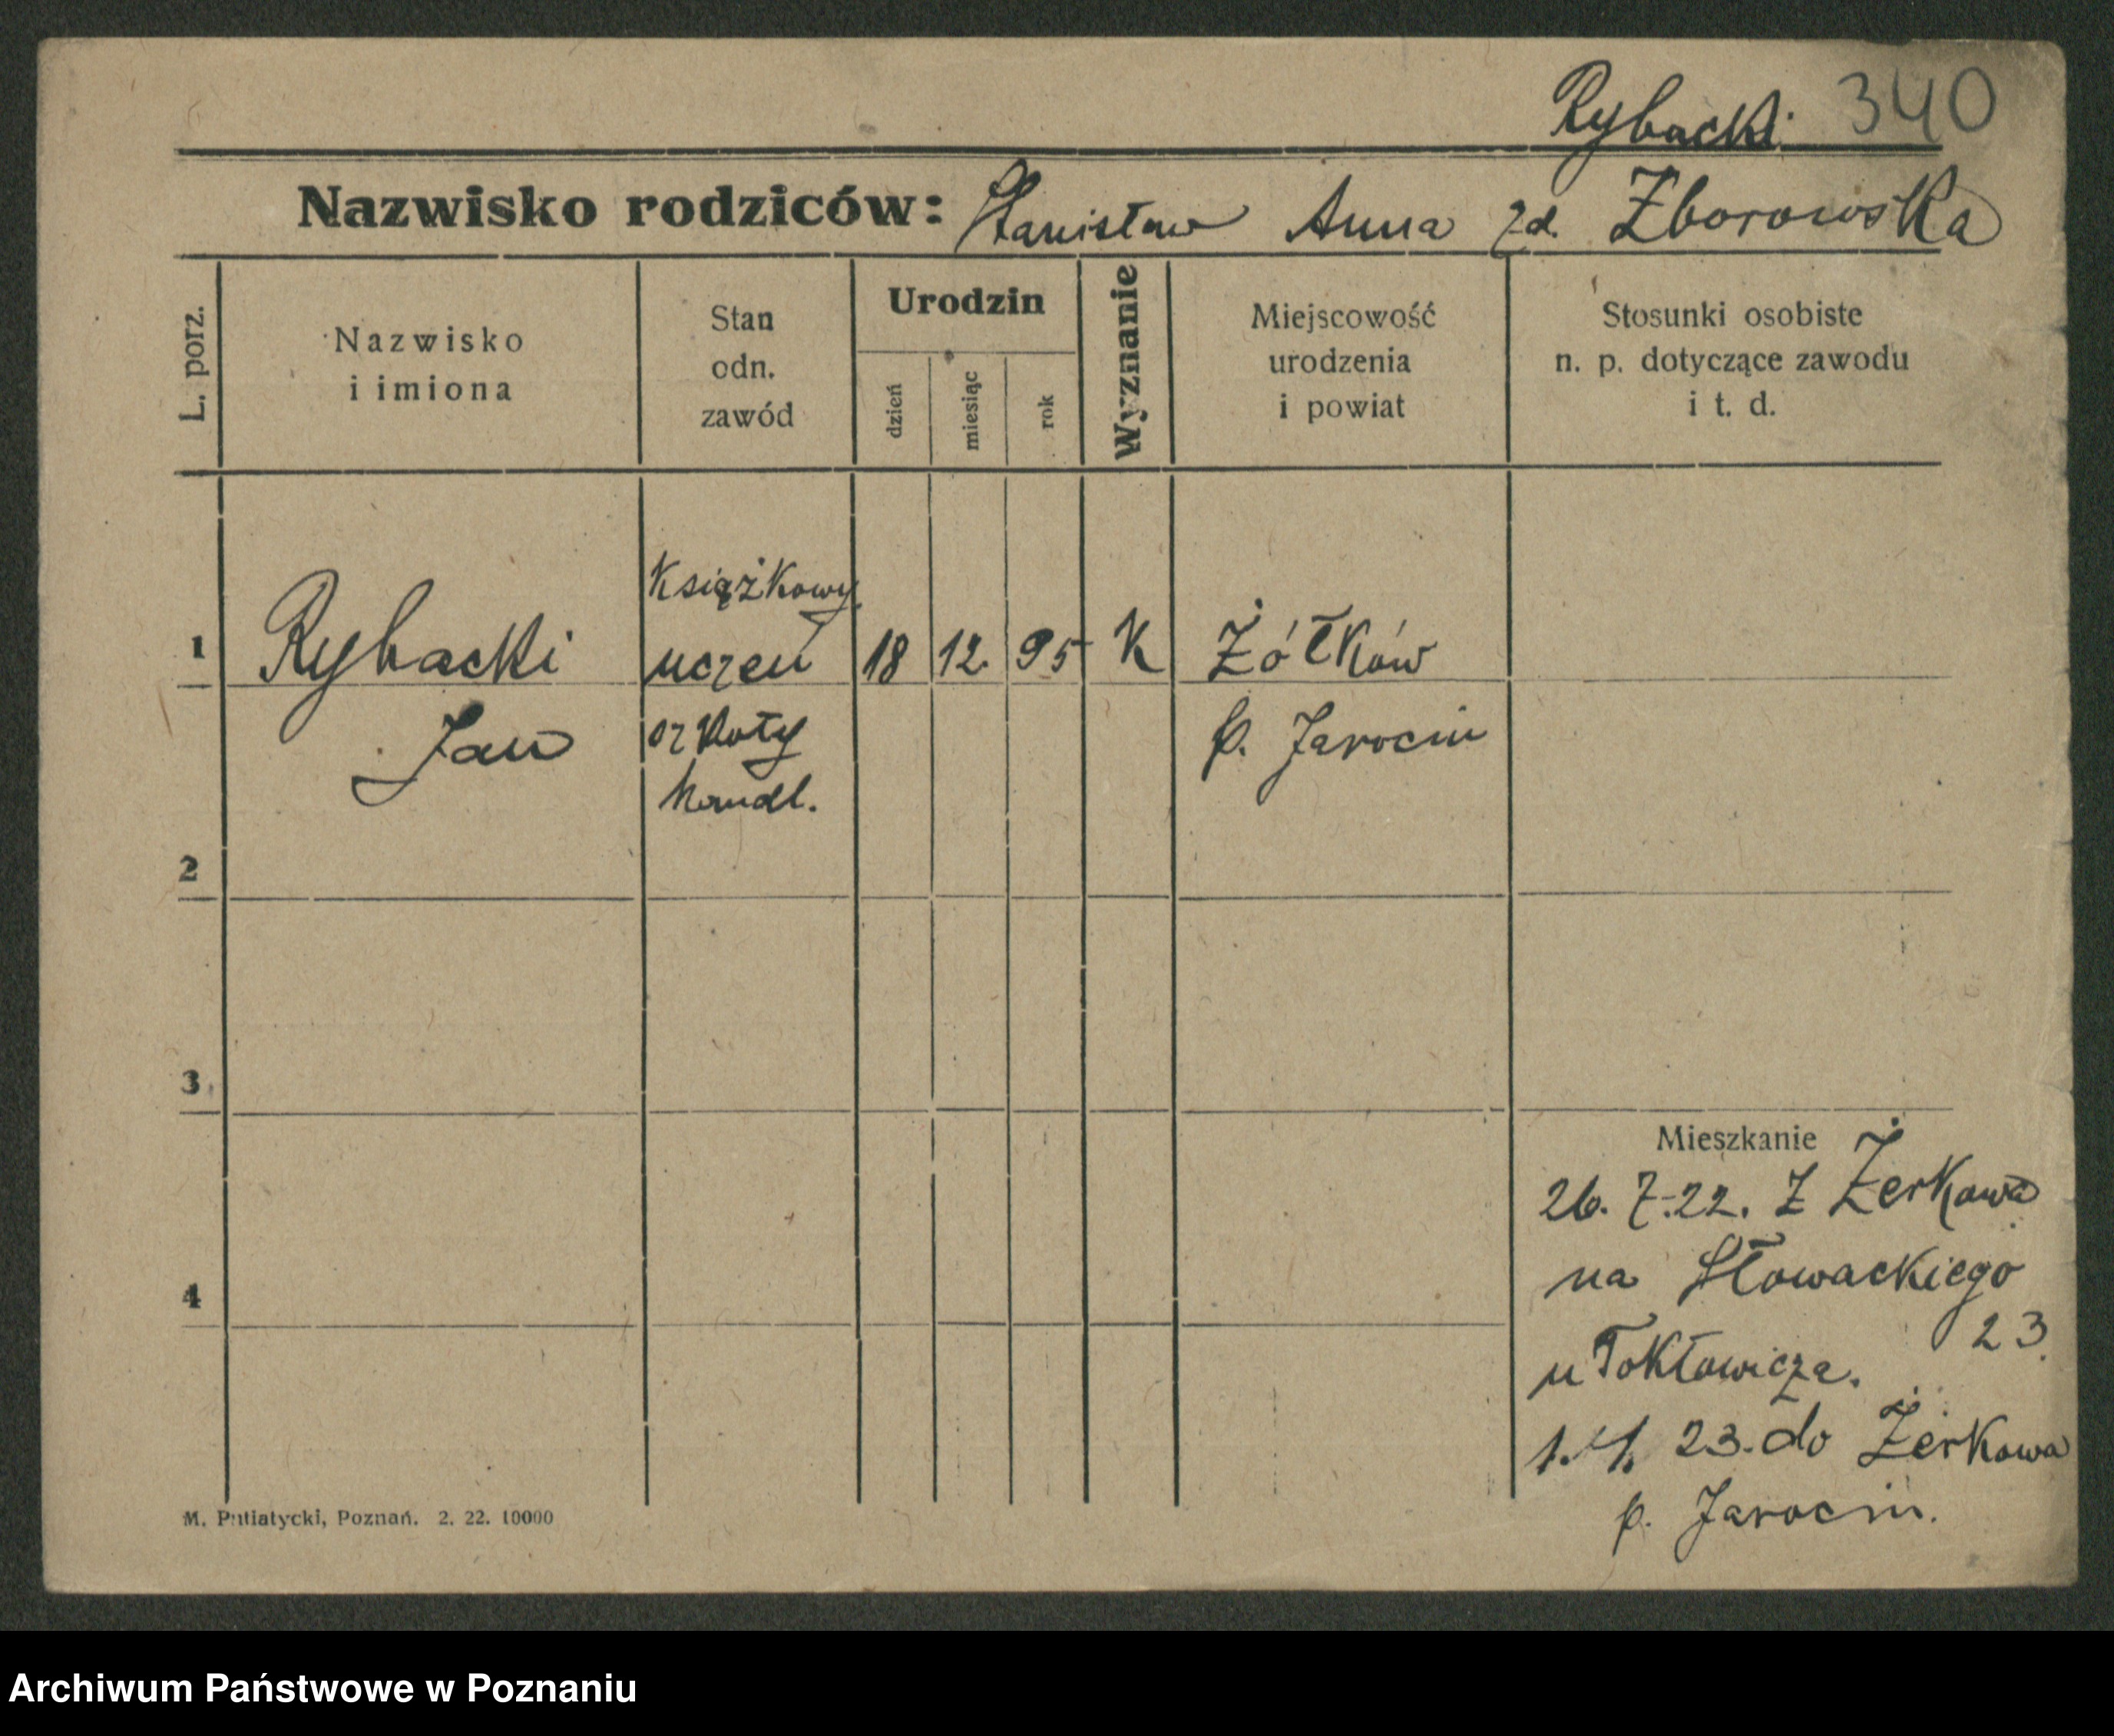 Rybacki 340
Nazwisko rodziców: Stanisław Anna zd. Zborowska
L. porz.
Nazwisko
i imiona
Stan
odn.
zawód
Urodzin
dzień
miesiąc
rok
Wyznanie
Miejscowość
urodzenia
i powiat
Stosunki osobiste
n. p. dotyczące zawodu
i t. d.
Książkowy
1 Rybacki uczeń 18 12. 95 K Żółków
Jan szkoły p. Jarocin
handl.
2
3
Mieszkanie
26. 7. 22. z Żerkowa
na Słowackiego
4
23.
u
1. 4. 23. do Żerkowa
p. Jarocin.
M. Putiatycki, Poznań. 2. 22. 10000
Archiwum Państwowe w Poznaniu